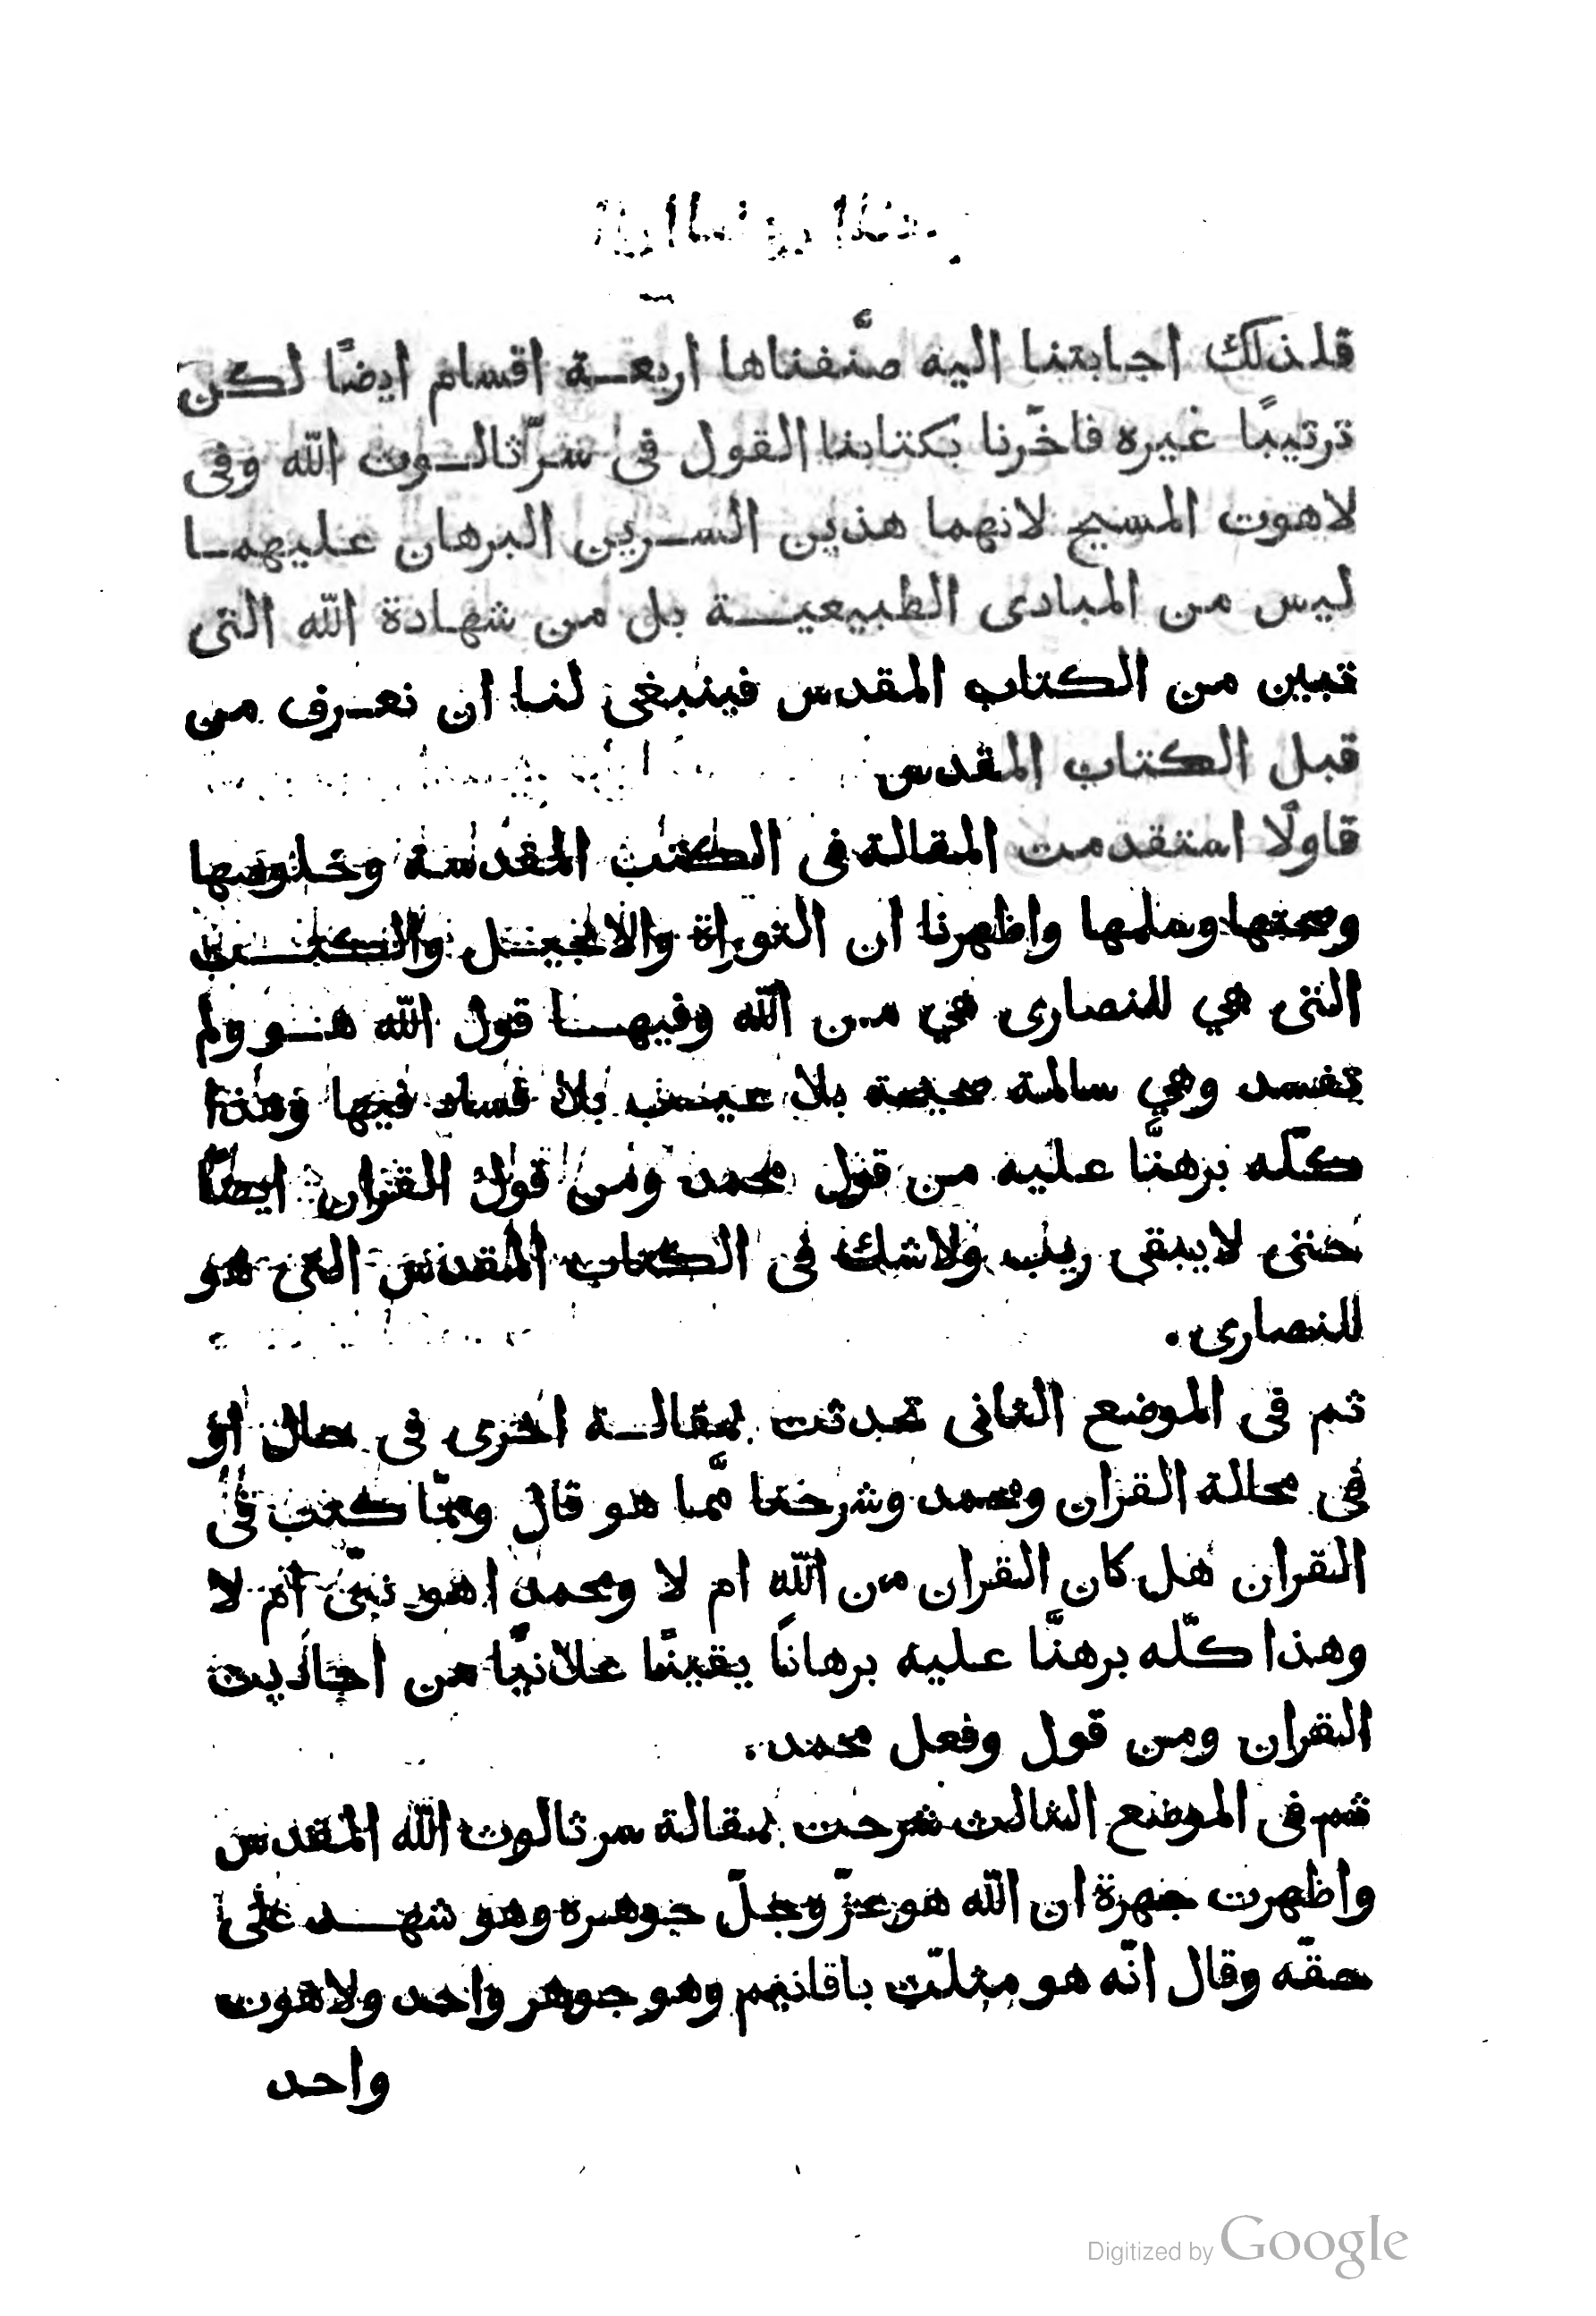 فلذلك اجابتنا اليه صنّفناها اربعـة اقسام ايضًا لكن
ترتيبًا غيره فاخّرنا بكتابنا القول فى سرّ ثالـوث اللّه وفى
لاهوت المسيح لانهما هذين السـرين البرهان عليهمـا
ليس من المبادى الطبيعيـة بل من شهادة اللّه التى
تبين من الكتاب المقدس فينبغى لنا ان نعـرف من
قبل الكتاب المقدس
فاولًا استقدمت المقالة فى الكتب المقدسة وخلوصها
وصحتها وسلمها واظهرنا ان التوراة والانجيـل والكتـب
التى هي للنصارى هي من اللّه وفيهـا قول اللّه هـو ولم
تفسد وهي سالمة صحيحة بلا عيـب بلا فساد فيها وهذا
كلّه برهنَّا عليه من قول محمد ومن قول القران ايضًا
حتى لا يبقى ريب ولا شك فى الكتاب المقدس التى هو
للنصارى .
ثم فى الموضع الثانى تحدثت بمقالـة اخرى فى حال او
فى محالة القران ومحمد وشرحنا ممَّا هو قال وممّا كتب فى
القران هل كان القران من اللّه ام لا ومحمد اهو نبىّ ام لا
وهذا كلّه برهنَّا عليه برهانًا يقينًا علانيًا من احاديث
القران ومن قول وفعل محمد .
ثم فى الموضع الثالث شرحت بمقالة سر ثالوث اللّه المقدس
واظهرت جهرة ان اللّه هو عزّ وجلّ جوهره وهو شهـد على
حقّه وقال انّه هو مثلّث باقانيم وهو جوهر واحد ولاهوت
واحد
Digitized by Google